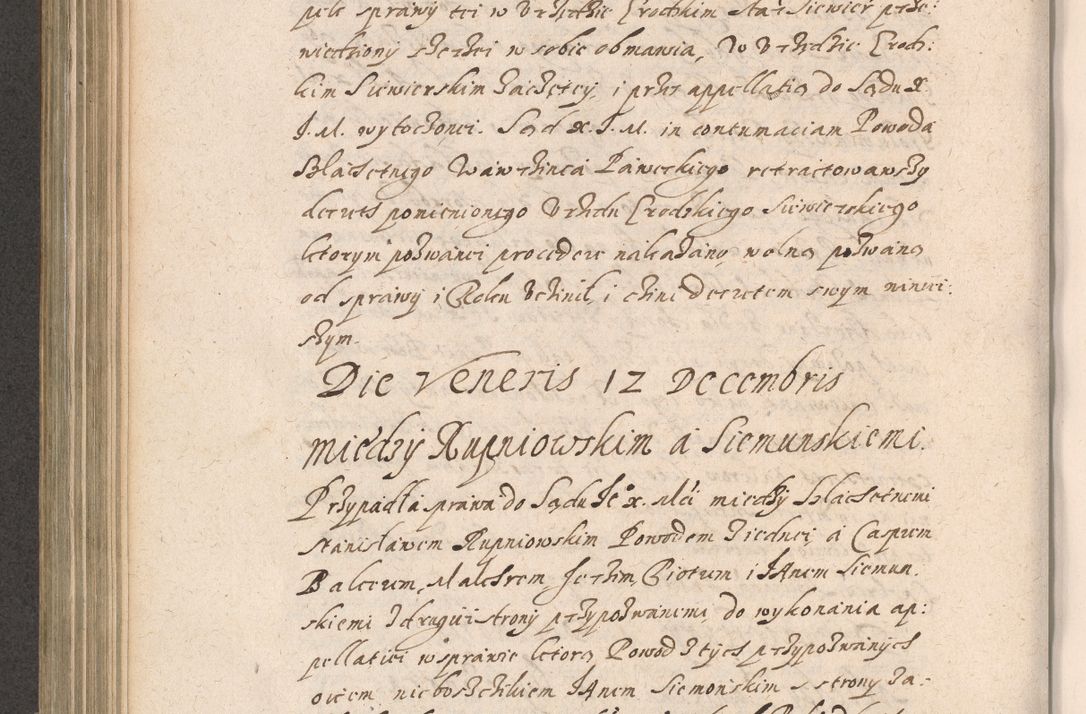 pele sprawy tei w Vrzędzie Grodzkim Star Siewier prze:
wiedziony szerzei w sobie obmawia, W Vrzędzie Grodz:
kim Siewierskim zaczętey, i przez appellatią do Sądu X.
J. M. wytoczonei. Sąd X. J. M. in contumaciam Powoda
Szlachetnego Wawrzinca Paweckiego retractowawszy
decrets pomienionego Vrzędu Grodzkiego Siewierskiego
ktorym pozwanei procedere nakazano, wolną pozwaną
od sprawy i Roku Vczinił, i czini decretem swym ninei:
szym.
Die Veneris 12 Decembris
między Rupniowskim a Siemunskiemi.
Przypadła sprawa do Sądu Je° X. Mći miedzy Szlachetnemi
Stanisławem Rupniowskim Powodem z iednei, a Casprem
Balcerum, Malchrem Jerzim, Piotrum i JAnem Siemun.
skiemi z drugiei strony przypozwanemi, do wykonania ap:
pellatiei w sprawie ktorą Powod z tych przypozwanych
oicem nieboszczikiem JAnem Siemonskim s strony za: